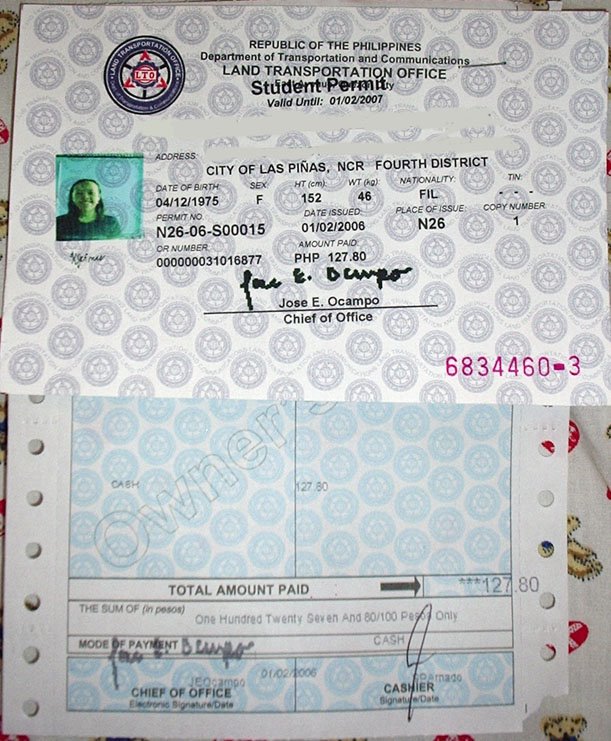 REPUBLIC OF THE PHILIPPINES
Department of Transportation and Communications
LAND TRANSPORTATION OFFICE
Student Permit
Valid Until: 01/02/2007
LAND TRANSPORTATION OFFICE
LTO
ADDRESS:
CITY OF LAS PIÑAS, NCR FOURTH DISTRICT
DATE OF BIRTH SEX HT (cm) WT (kg) NATIONALITY TIN:
04/12/1975 F 152 46 FIL - - -
PERMIT NO. DATE ISSUED: PLACE OF ISSUE: COPY NUMBER
N26-06-S00015 01/02/2006 N26 1
OR NUMBER: AMOUNT PAID:
000000031016877 PHP 127.80
Jose E. Ocampo
Jose E. Ocampo
Chief of Office
6834460-3
Owner's
CASH 127.80
TOTAL AMOUNT PAID ***127.80
THE SUM OF (in pesos)
One Hundred Twenty Seven And 80/100 Pesos Only
MODE OF PAYMENT CASH
Jose E. Ocampo
JEOcampo 01/02/2006
CHIEF OF OFFICE CASHIER
Electronic Signature/Date Signature/Date